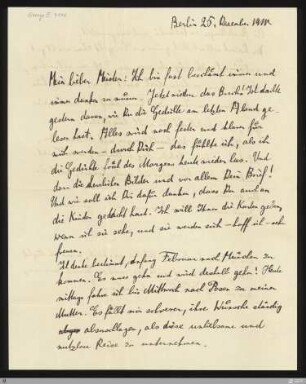 Berlin 25. Dezember 19
Mein lieber Meister: Ich bin fast beschämt immer und
immer danken zu müssen. Jetzt wieder das Buch! Ich dachte
gestern daran, wie Du die Gedichte am letzten Abend ge-
lesen hast. Alles wird noch fester und klarer für
mich werden – durch Dich – das fühlte ich, als ich
die Gedichte früh des Morgens heute wieder las. Und
dann die herrlichen Bilder und vor allem Dein Brief!
Und wie soll ich Dir dafür danken, dass Du auch an
die Kinder gedacht hast. Ich will Ihnen die Karten geben,
wenn ich sie sehe, und sie werden sich – hoff ich – sehr
freuen.
Ich denke bestimmt, Anfang Februar nach München zu
kommen. Es muss gehn und wird deshalb gehn! Heute
mittag fahre ich bis Mittwoch nach Posen zu meiner
Mutter. Es fällt mir schwerer, ihre Wünsche ständig
abzuschlagen, als diese unliebsame und
nutzlose Reise zu unternehmen.